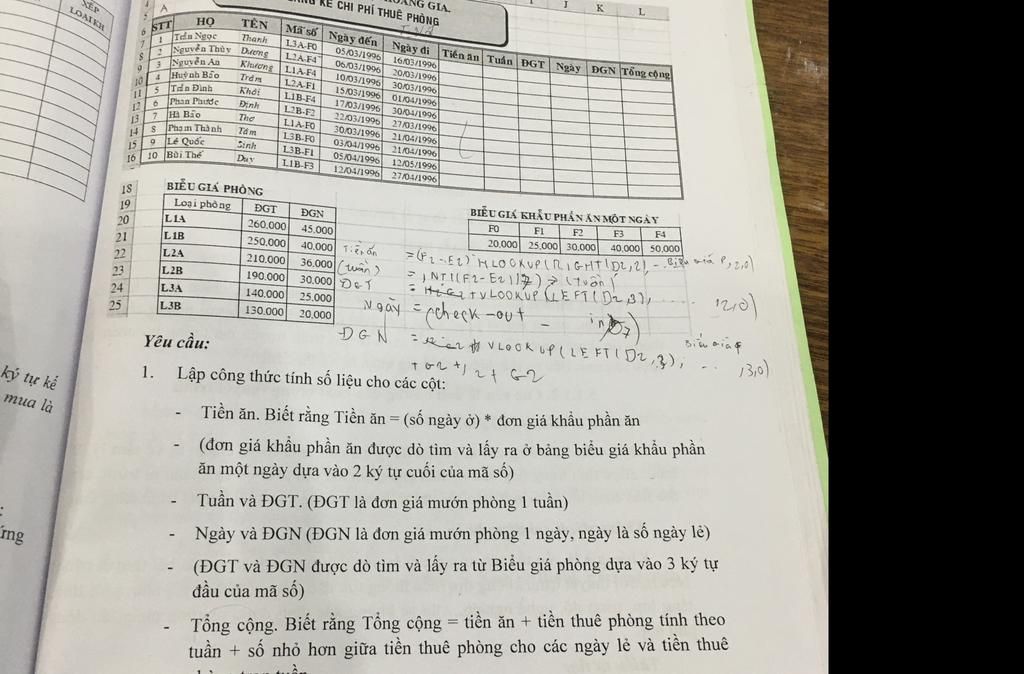 XẾP
LOẠI KH
ký tự kế
mua là
J K L
KÊ CHI PHÍ THUÊ PHÒNG
STT HỌ TÊN Mã số Ngày đến Ngày đi Tiền ăn Tuần ĐGT Ngày ĐGN Tổng cộng
1 Trần Ngọc Thanh L3A-F0 05/03/1996 16/03/1996
2 Nguyễn Thùy Dương L2A-F4 06/03/1996 20/03/1996
3 Nguyễn An Khương L1A-F4 10/03/1996 30/03/1996
4 Huỳnh Bảo Trâm L2A-F1 15/03/1996 01/04/1996
5 Trần Đình Khôi L1B-F4 17/03/1996 30/04/1996
6 Phan Phước Định L2B-F2 22/03/1996 27/03/1996
7 Hà Bảo Thơ L1A-F0 30/03/1996 21/04/1996
8 Phạm Thành Tâm L3B-F0 03/04/1996 21/04/1996
9 Lê Quốc Sinh L3B-F1 05/04/1996 12/05/1996
10 Bùi Thế Duy L1B-F3 12/04/1996 27/04/1996
18 BIỂU GIÁ PHÒNG
19 Loại phòng ĐGT ĐGN
20 L1A 260.000 45.000
21 L1B 250.000 40.000
22 L2A 210.000 36.000
23 L2B 190.000 30.000
24 L3A 140.000 25.000
25 L3B 130.000 20.000
BIỂU GIÁ KHẨU PHẦN ĂN MỘT NGÀY
F0 F1 F2 F3 F4
20,000 25,000 30,000 40,000 50,000
Tiền ăn =(F2-E2)*HLOOKUP(RIGHT(D2,2), ... Biểu giá P,2,0)
(tuần) = INT((F2-E2)/7) → (tuần)
ĐGT VLOOKUP(LEFT(D2,3), ..... ,2,0)
Ngày = (check-out - in
ĐGN = VLOOKUP(LEFT(D2,3), ... ,3,0)
Yêu cầu:
1. Lập công thức tính số liệu cho các cột:
- Tiền ăn. Biết rằng Tiền ăn = (số ngày ở) * đơn giá khẩu phần ăn
- (đơn giá khẩu phần ăn được dò tìm và lấy ra ở bảng biểu giá khẩu phần
ăn một ngày dựa vào 2 ký tự cuối của mã số)
- Tuần và ĐGT. (ĐGT là đơn giá mướn phòng 1 tuần)
- Ngày và ĐGN (ĐGN là đơn giá mướn phòng 1 ngày, ngày là số ngày lẻ)
- (ĐGT và ĐGN được dò tìm và lấy ra từ Biểu giá phòng dựa vào 3 ký tự
đầu của mã số)
- Tổng cộng. Biết rằng Tổng cộng = tiền ăn + tiền thuê phòng tính theo
tuần + số nhỏ hơn giữa tiền thuê phòng cho các ngày lẻ và tiền thuê